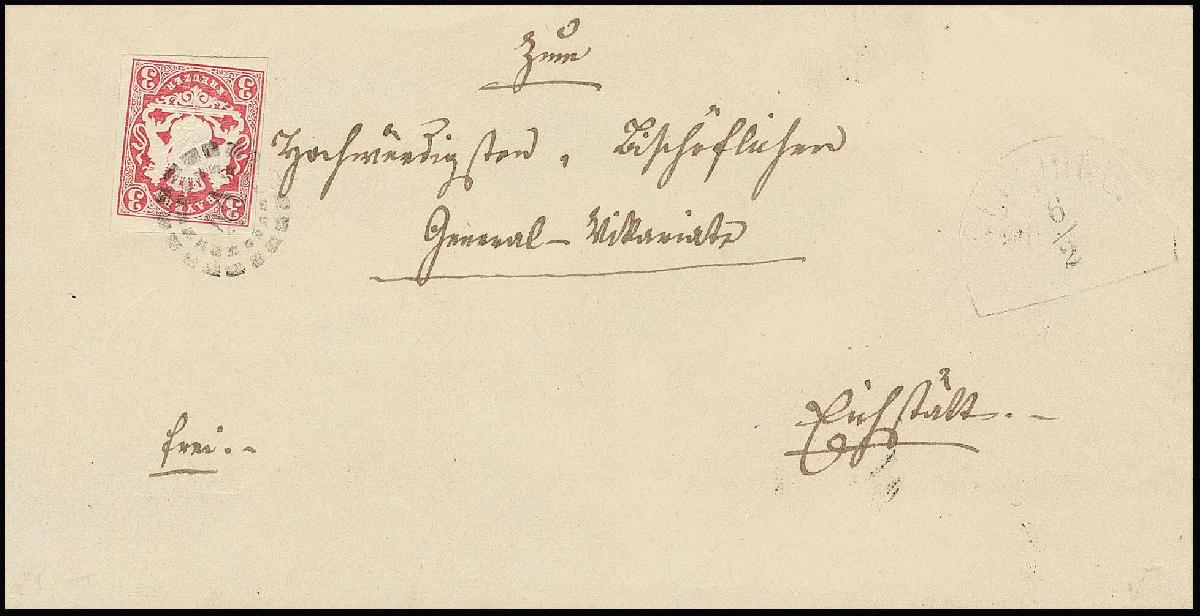 Zum
Hochwürdigsten, Bischöflichen
General-Vikariate
Eichstätt.-
frei.-
3 KREUZER 3
3 BAYERN 3
6/2